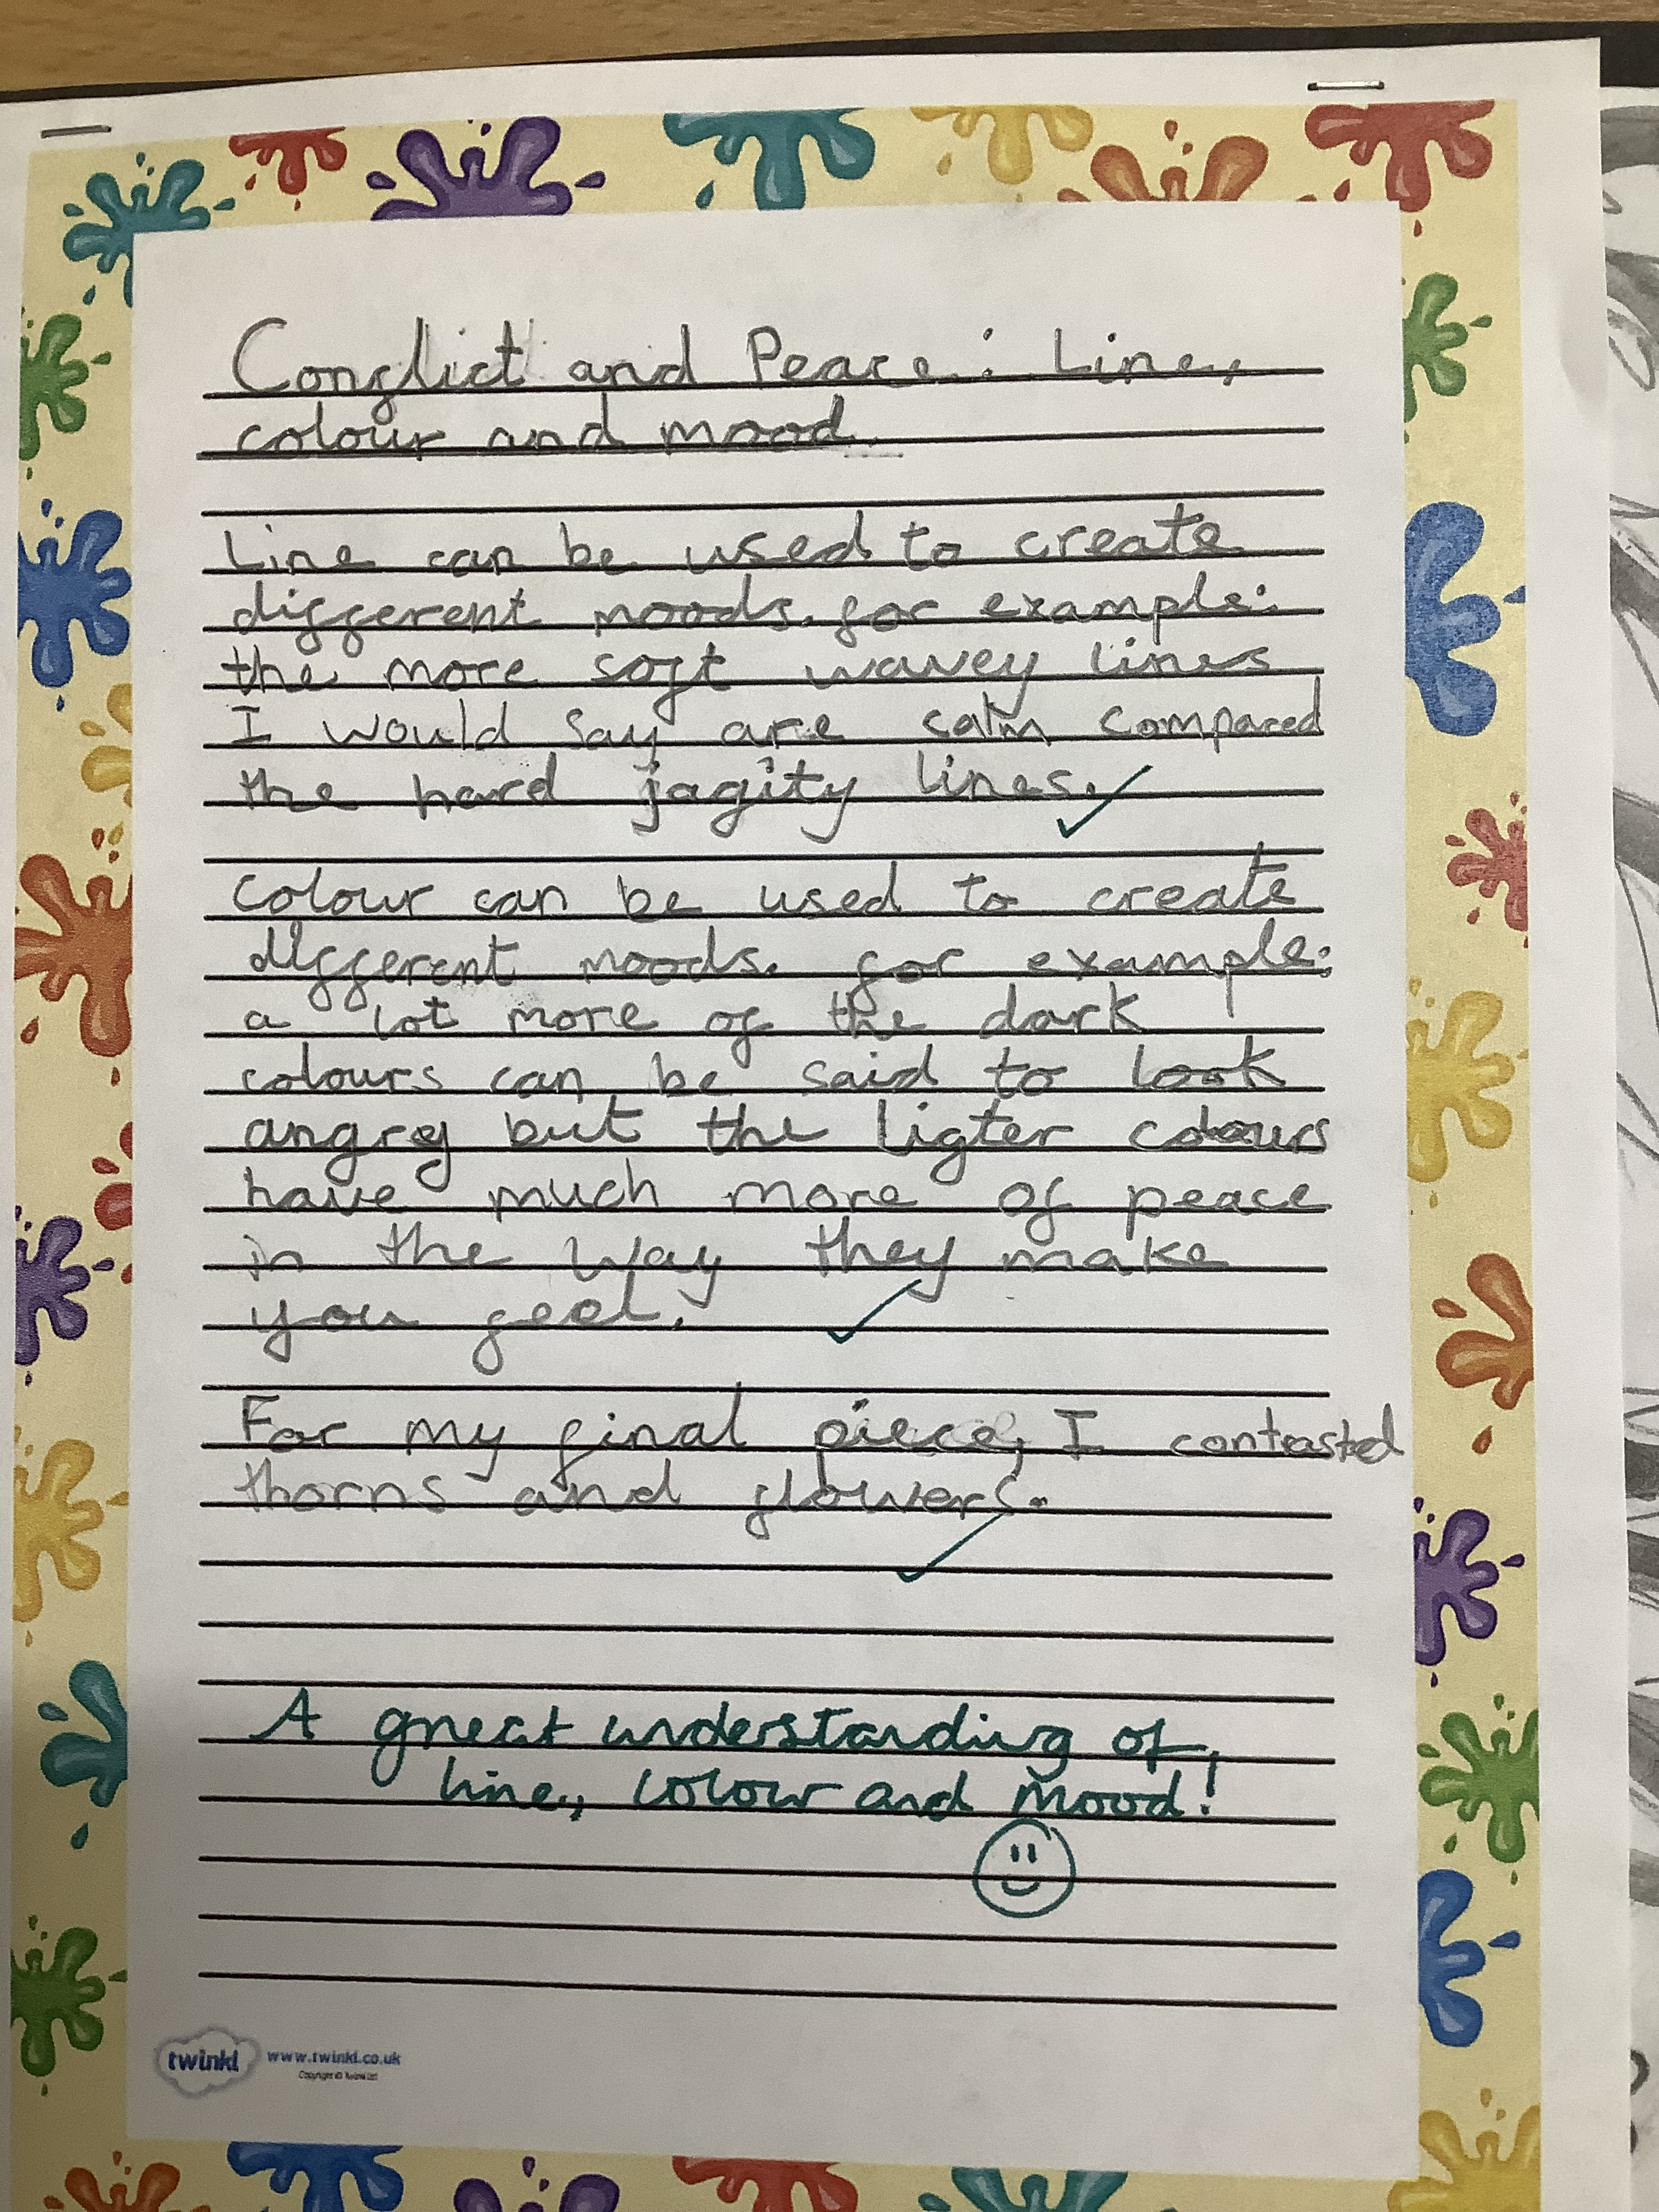 Conflict and Peace: Line,
colour and mood
Line can be used to create
different moods. for example:
the more soft wavey lines
I would say are calm compared
the hard jagity lines.
colour can be used to create
different moods. for example:
a lot more of the dark
colours can be said to look
angrey but the ligter colours
have much more of peace
in the way they make
you feel.
For my final piece, I contrasted
thorns and flowers.
A great understanding of
line, colour and mood!
twinkl www.twinkl.co.uk
Copyright © Twinkl Ltd